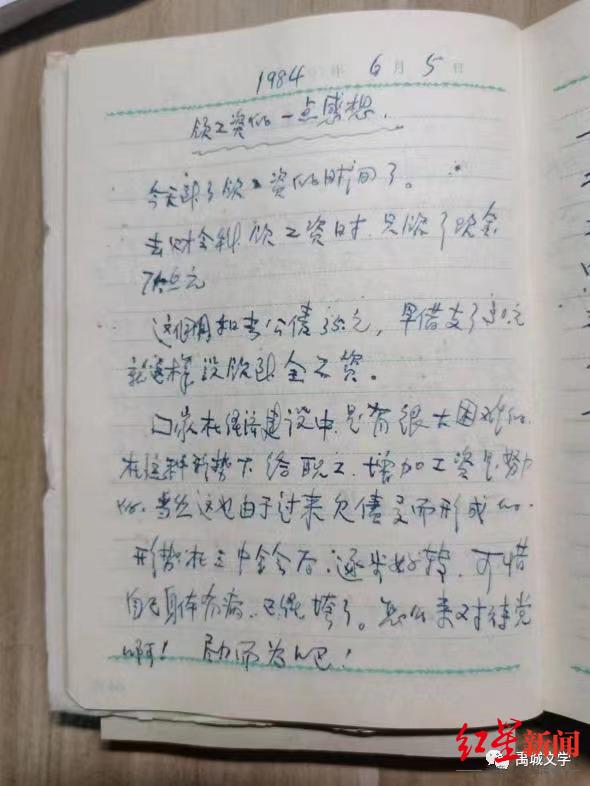 1984年6月5日
领工资的一点感想.
今天到了领工资的时间了。
去财会科领工资时.只领了现金
元
这個月扣去公债元, 早借支了30元
就这样没领到全工资。
国家在经济建设中.是有很大困难的.
在这种形势下给职工.增加工资是努力
的.当然这也由于过来欠债多而形成的.
形势在三中全会后.逐步好转.可惜
自己身体有病.已混垮了。怎么来对待党
啊! 尽力而为吧!
红星新闻
禹城文学